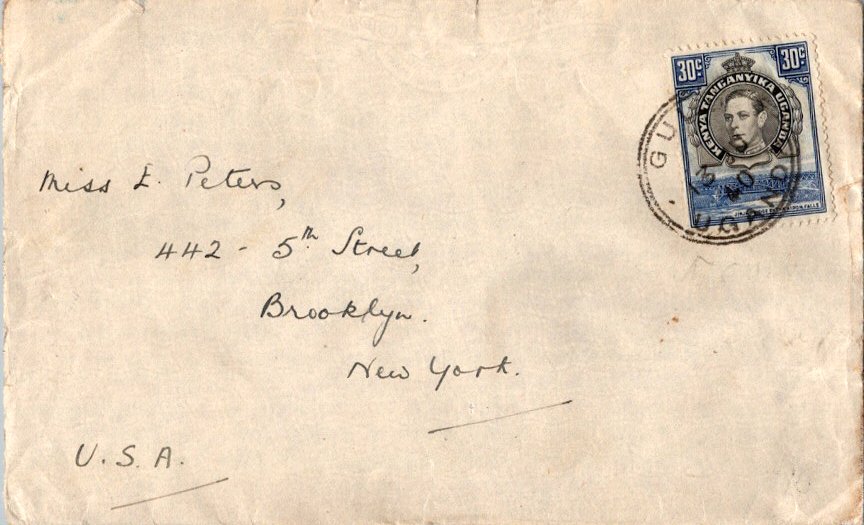 30c 30c
KENYA TANGANYIKA UGANDA
GU
40
UGAND
Miss E. Peters,
442 - 5th Street,
Brooklyn.
New York.
U.S.A.